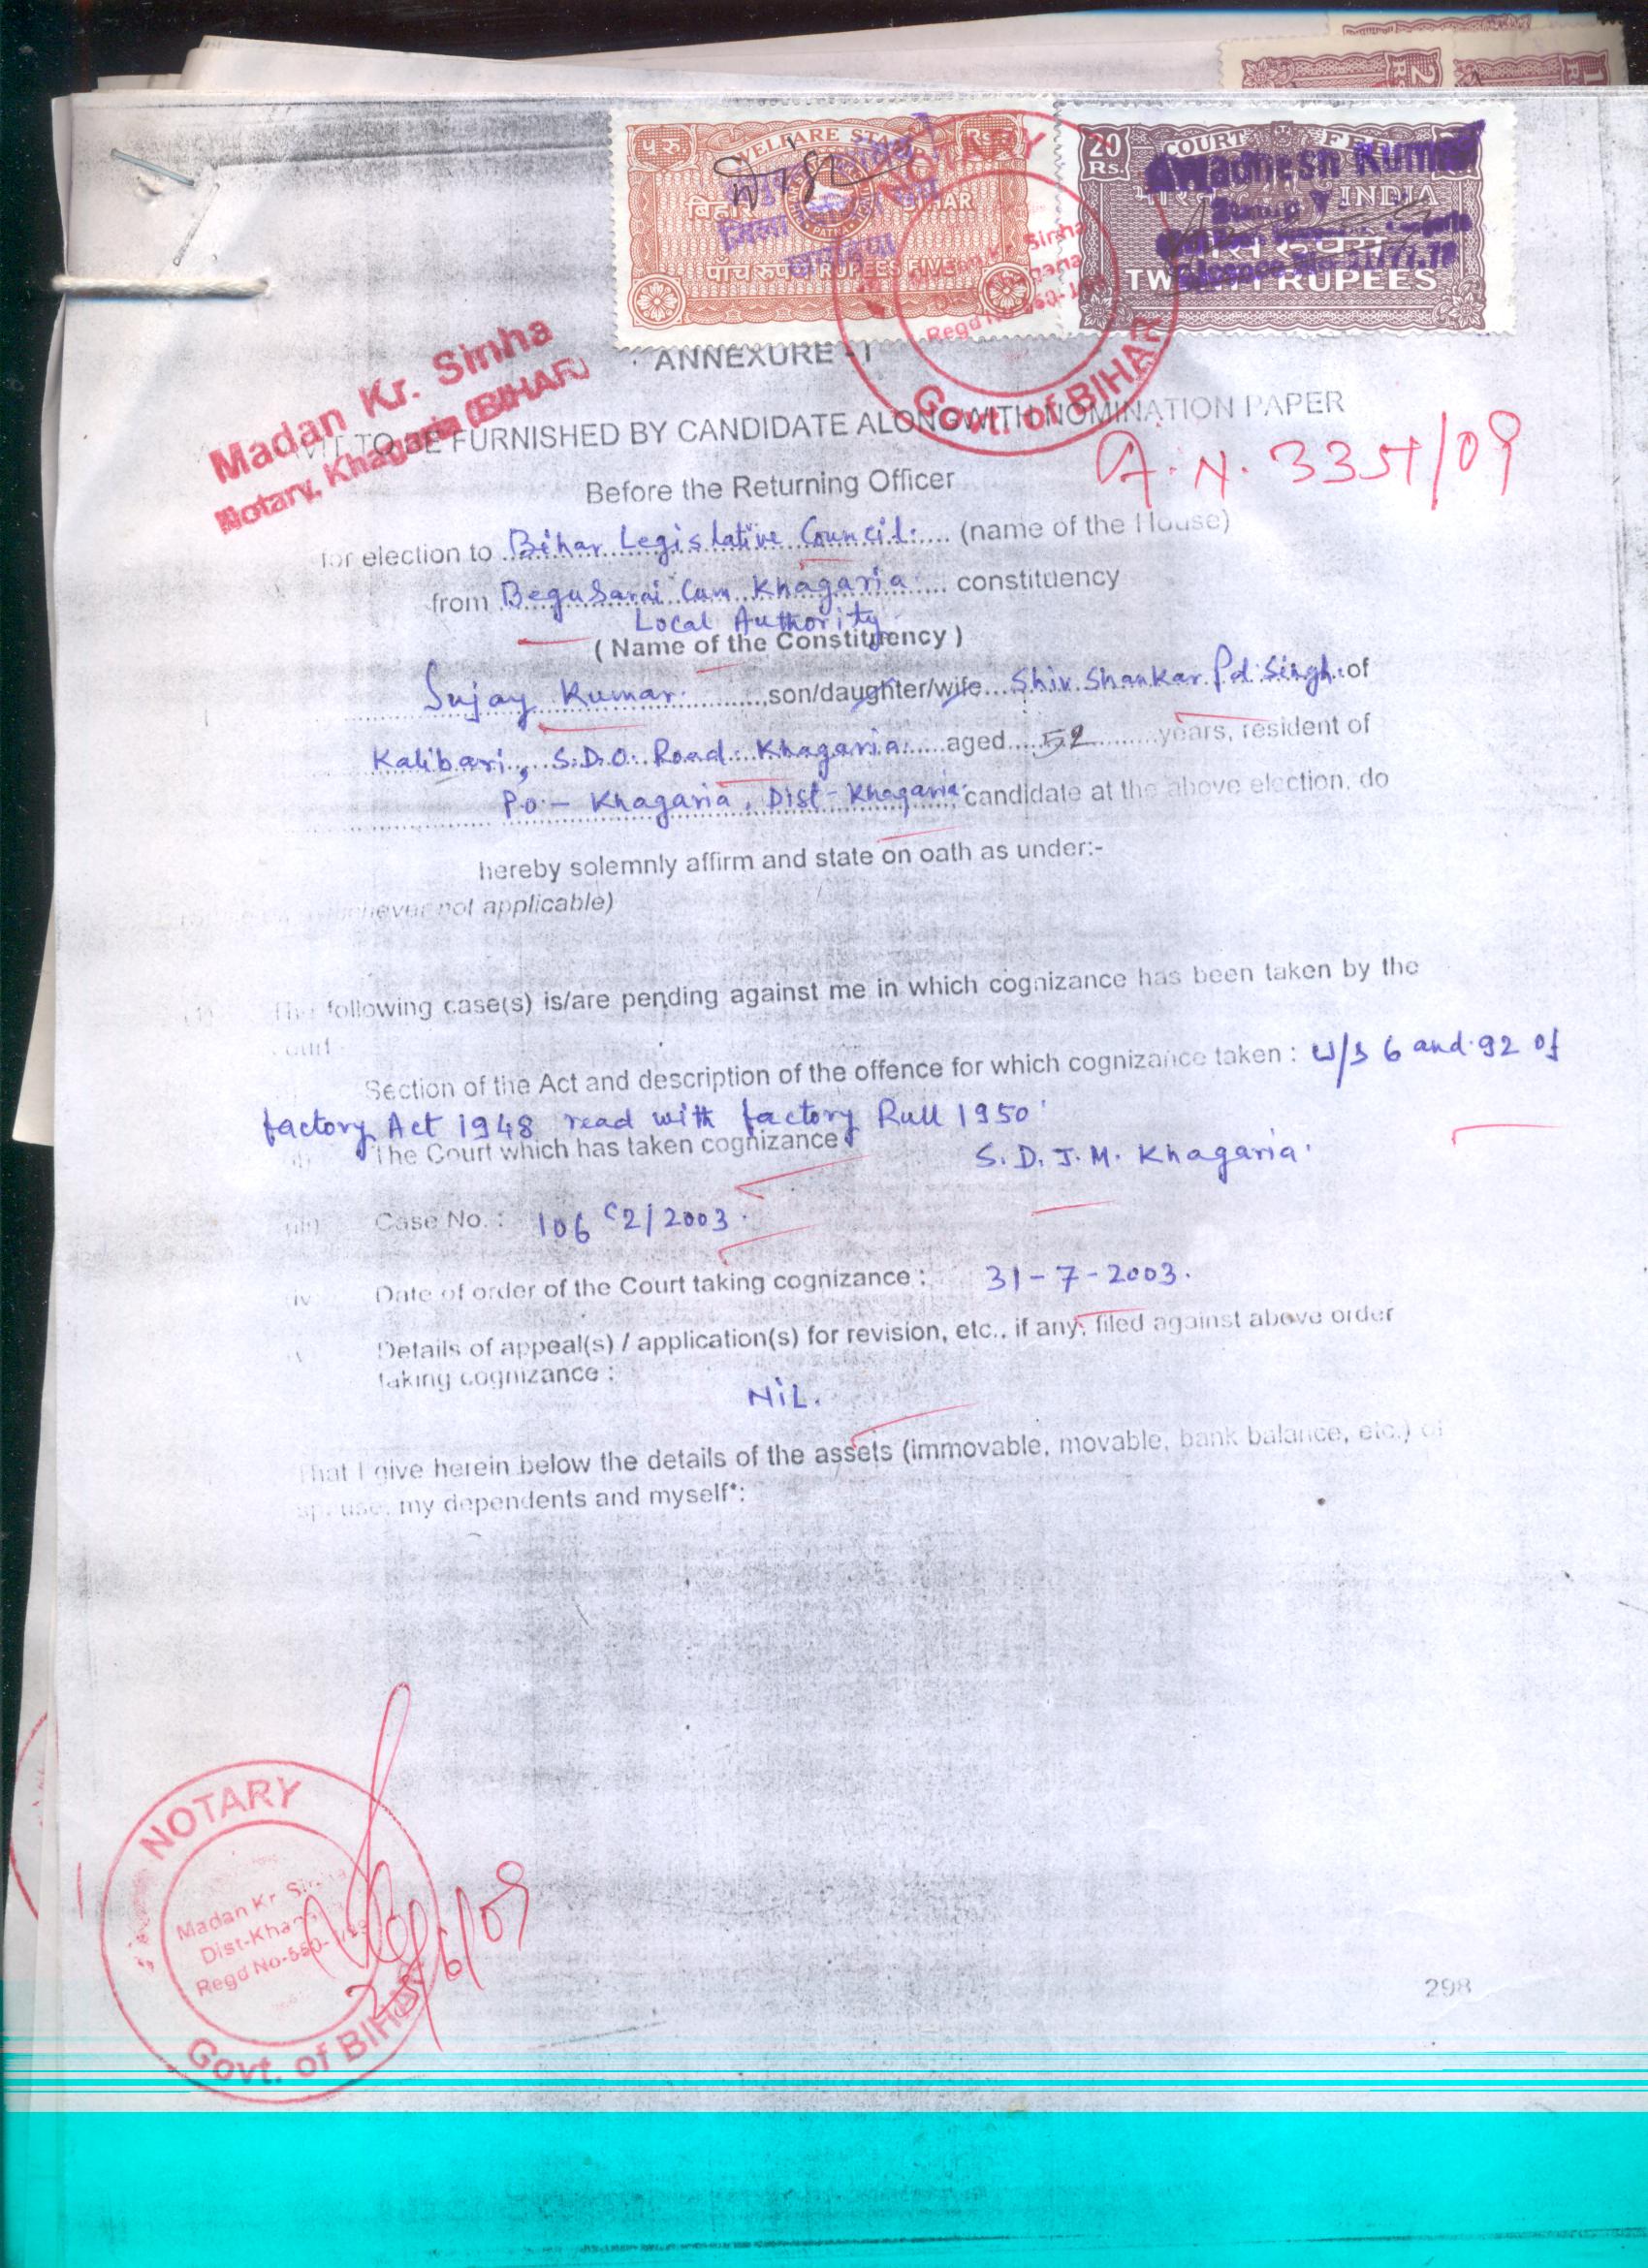 2 Rs
1 Rs
प रु WELFARE STAMP Rs
बिहार BIHAR
PATNA
जिला
खगड़िया
पाँच रुपये RUPEES FIVE
20 Rs. COURT FEE
Awadhesh Kumar
भारत INDIA
बीस रुपये
TWENTY RUPEES
NOTARY
Madan Kr. Sinha
Regd No
Govt. of BIHAR
Madan Kr. Sinha
Notary, Khagaria (BIHAR)
ANNEXURE - I
VIT TO BE FURNISHED BY CANDIDATE ALONGWITH NOMINATION PAPER
A.N. 3354/09
Before the Returning Officer
for election to Bihar Legislative Council. (name of the House)
from BeguSarai Cum Khagaria constituency
Local Authority
( Name of the Constituency )
Sujay Kumar. son/daughter/wife Shiv Shankar Pd. Singh of
Kalibari, S.D.O. Road. Khagaria. aged 52 years, resident of
P.o. - Khagaria, Dist - Khagaria candidate at the above election, do
hereby solemnly affirm and state on oath as under:-
not applicable)
The following case(s) is/are pending against me in which cognizance has been taken by the
court
Section of the Act and description of the offence for which cognizance taken : U/S 6 and 92 of
factory Act 1948 read with factory Rull 1950
The Court which has taken cognizance
S.D.J.M. Khagaria.
(iii) Case No. : 106 C2/2003.
(iv) Date of order of the Court taking cognizance : 31-7-2003.
(v) Details of appeal(s) / application(s) for revision, etc., if any, filed against above order
taking cognizance :
NiL.
That I give herein below the details of the assets (immovable, movable, bank balance, etc.) of
spouse, my dependents and myself*:
NOTARY
Madan Kr. Sinha
Dist-Khagaria
Regd No-550-
Govt. of BIHAR
25/6/09
298